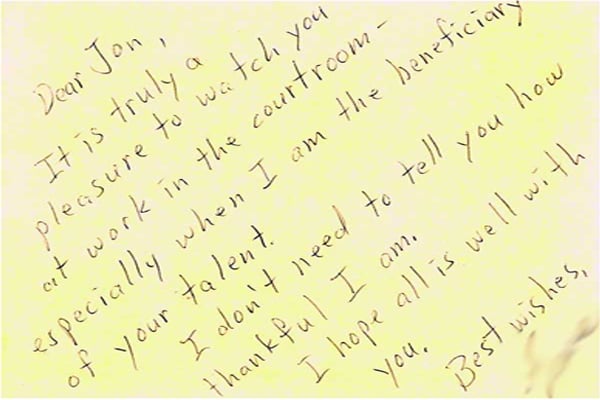 Dear Jon,
It is truly a
pleasure to watch you
at work in the courtroom-
especially when I am the beneficiary
of your talent.
I don't need to tell you how
thankful I am.
I hope all is well with
you.
Best wishes,